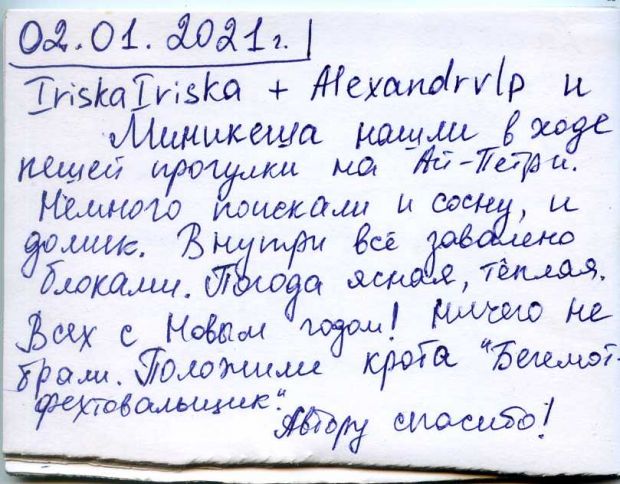 02.01.2021г.
IriskaIriska + Alexandrvlp и
Миникеша нашли в ходе
пешей прогулки на Ай-Петри.
Немного поискали и сосну, и
домик. Внутри всё завалено
блоками. Погода ясная, тёплая.
Всех с Новым годом! Ничего не
брали. Положили крота "Бегемот-
фехтовальщик".
Автору спасибо!